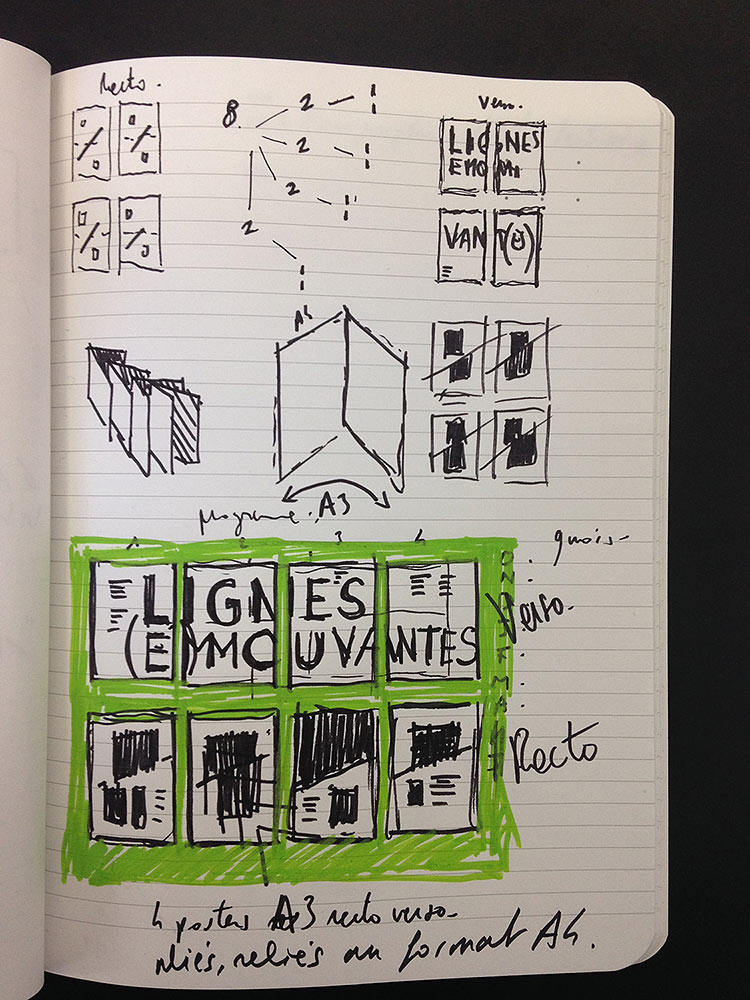 Recto.
8.
2
2
2
2
Verso.
LIGNES
EMO
VAN
A4
programme. A3
1 2 3 4
9 mois-
LIGNES
(E)MOUVANTES
Verso.
Recto
4 posters A3 recto verso-
pliés, reliés au format A4.